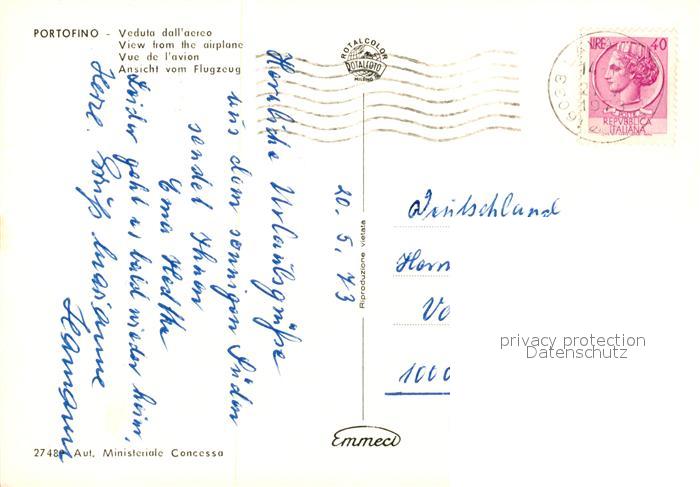 PORTOFINO - Veduta dall'aereo
View from the airplane
Vue de l'avion
Ansicht vom Flugzeug
Herzliche Urlaubsgrüße
aus dem sonnigen Süden
sendet Ihnen
Erna
Leider geht es bald wieder heim.
Herzl. Grüße Marianne
20. 5. 73
ROTALCOLOR
ROTALFOTO
MILANO
Riproduzione vietata
40
REPVBBLICA
ITALIANA
Deutschland
Herrn
1000
privacy protection
Datenschutz
Emmeci
Aut. Ministeriale Concessa